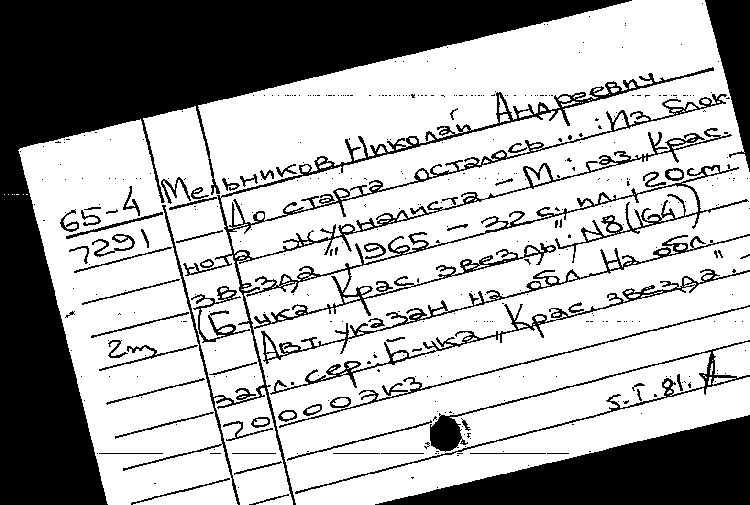 Мельников, Николай Андреевич.
65-4
7291
До старта осталось...: Из блок-
нота журналиста. - М.: газ. „Крас.
звезда", 1965. - 32 с., ил.; 20 см. -
(Б-чка „Крас. звезды"; N8(164))
2т
Авт. указан на обл. На обл.
загл. сер.: Б-чка „Крас. звезда". -
70000 экз
5.I.81.